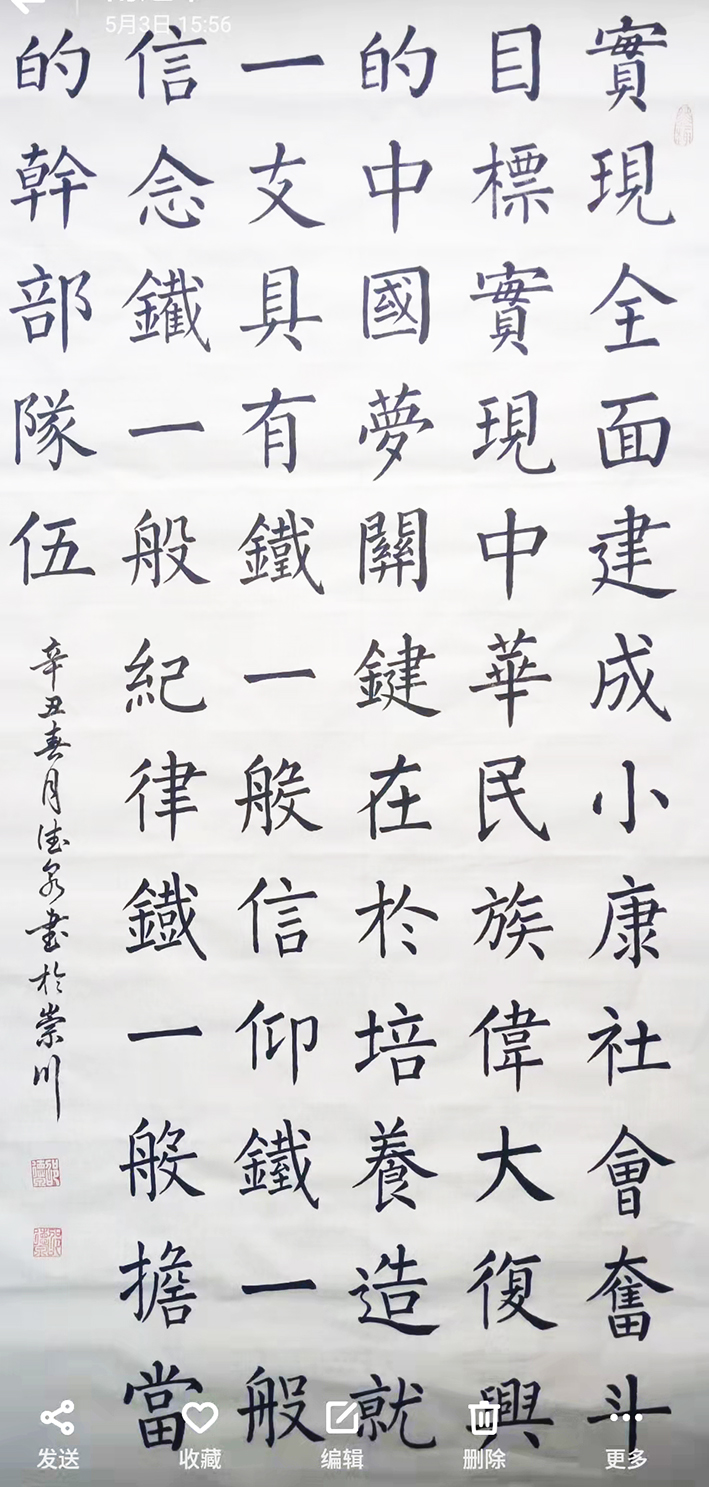 5月3日 15:56
實現全面建成小康社會奮斗
目標實現中華民族偉大復興
的中國夢關鍵在於培養造就
一支具有鐵一般信仰鐵一般
信念鐵一般紀律鐵一般擔當
的幹部隊伍
辛丑春月德泉书於崇川
发送 收藏 编辑 删除 更多